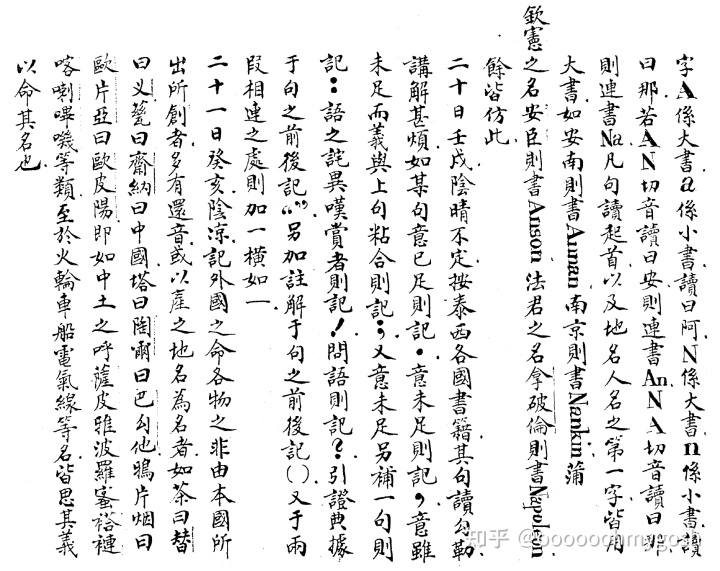 字A係大書a係小書讀曰阿N係大書n係小書讀
曰那若AN切音讀曰安則連書An.NA切音讀曰那
則連書Na凡句讀起首以及地名人名之第一字皆用
大書如安南則書Annan南京則書Nankin蒲
欽憲之名安臣則書Anson法君之名拿破倫則書Napoleon
餘皆仿此
二十日壬戌陰晴不定按泰西各國書籍其句讀勾勒
講解甚煩如某句意已足則記．意未足則記，意雖
未足而義與上句粘合則記；又意未足另補一句則
記：語之詫異嘆賞者則記！問語則記？引證典據
于句之前後記“”另加註解于句之前後記()又于兩
段相連之處則加一橫如—
二十一日癸亥陰涼記外國之命各物之非由本國所
出所創者多有還音或以產之地名為名者如茶曰替
曰义甕曰齋納曰中國塔曰陶爾曰巴勾他鴉片烟曰
歐片亞曰歐皮陽即如中土之呼薩皮雅波羅蜜褡褳
喀喇嗶嘰等類至於火輪車船電氣線等名皆思其義
以命其名也
知乎